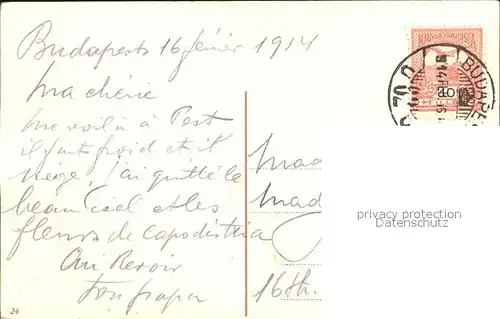 Budapest 16 février 1914
Ma chérie
me voilà à Pest
il fait froid et il
neige, j'ai quitté le
beau ciel et les
fleurs de Capodistria
Au Revoir
Ton papa
24
Mad
16 Str.
MAGYAR KIR. POSTA
10
BUDAPES
914
privacy protection
Datenschutz